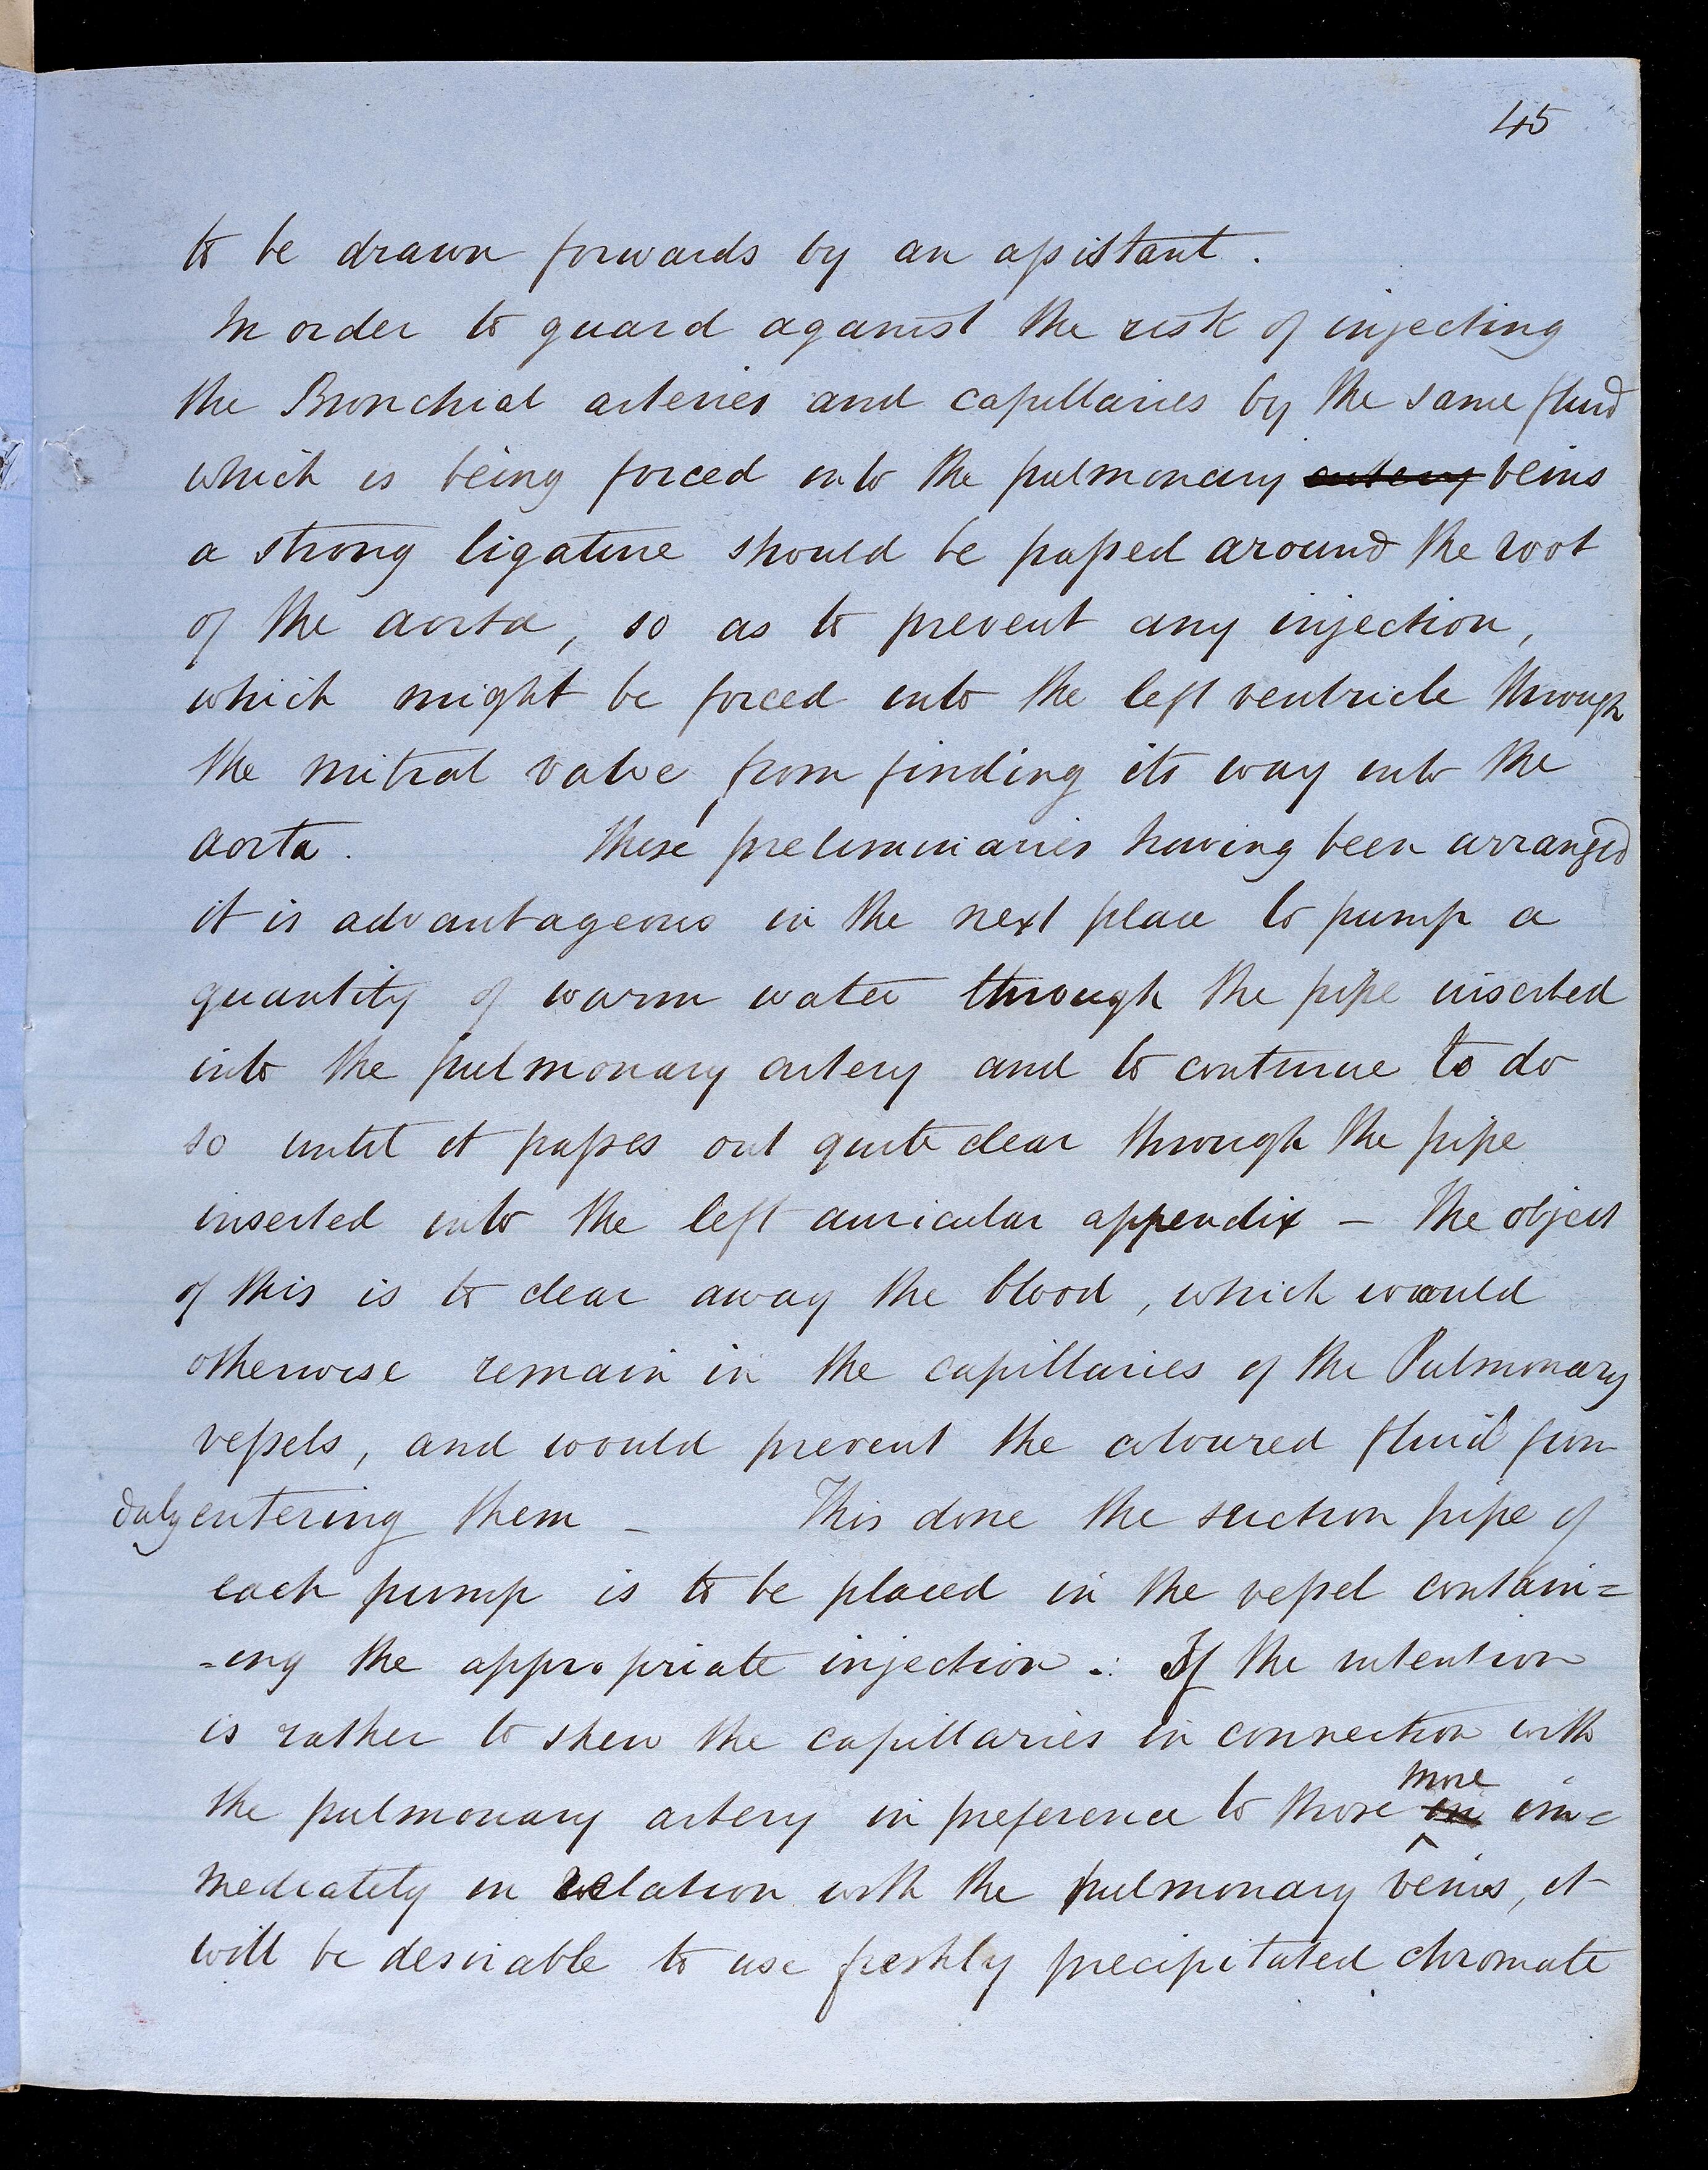 45
to be drawn forwards by an assistant.
In order to guard against the risk of injecting
the Bronchial arteries and capillaries by the same fluid
which is being forced into the pulmonary artery veins
a strong ligature should be passed around the root
of the aorta, so as to prevent any injection,
which might be forced into the left ventricle through
the mitral valve from finding its way into the
aorta. These preliminaries having been arranged
it is advantageous in the next place to pump a
quantity of warm water through the pipe inserted
into the pulmonary artery and to continue to do
so until it passes out quite clear through the pipe
inserted into the left auricular appendix – The object
of this is to clear away the blood, which would
otherwise remain in the capillaries of the Pulmonary
vessels, and would prevent the coloured fluid from
duly entering them – This done the suction pipe of
each pump is to be placed in the vessel contain=
=ing the appropriate injection. If the intention
is rather to shew the capillaries in connection with
more
the pulmonary artery in preference to those in im=
mediately in relation with the pulmonary veins, it
will be desirable to use freshly precipitated chromate